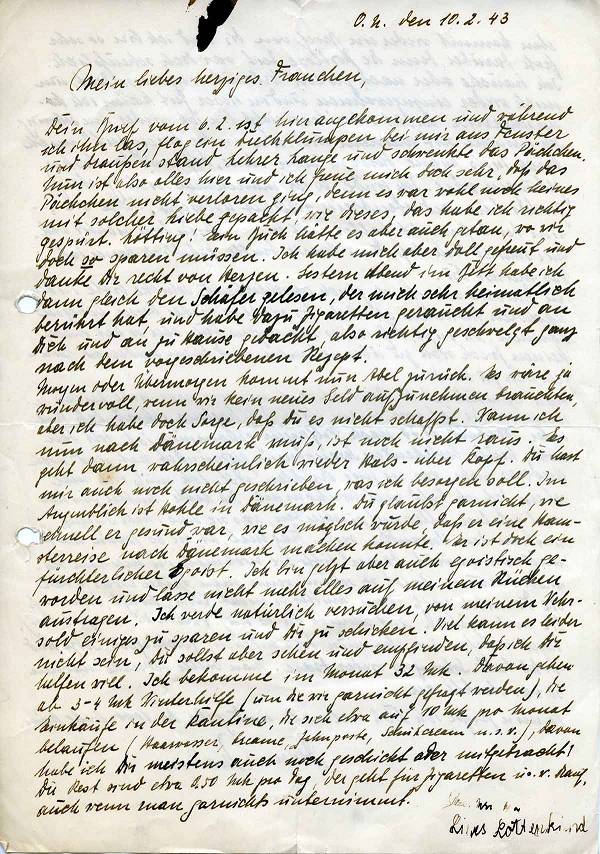 O.U. den 10.2.43
Mein liebes herziges Frauchen,
Dein Brief vom 6.2. ist hier angekommen und während
ich ihn las, flog ein Dreckklumpen bei mir ans Fenster
und draußen stand Lehrer Lange und schwenkte das Päckchen.
Nun ist also alles hier und ich freue mich doch sehr, daß das
Päckchen nicht verloren ging, denn es war wohl noch keines
mit solcher Liebe gepackt wie dieses, das habe ich richtig
gespürt. Ein Buch hätte es aber auch getan, wo wir
doch so sparen müssen. Ich habe mich aber doll gefreut und
danke Dir recht von Herzen. Gestern abend im Bett habe ich
dann gleich den Schäfer gelesen, der mich sehr heimatlich
berührt hat, und habe dazu Zigaretten geraucht und an
Dich und an zu Hause gedacht, also richtig geschwelgt ganz
nach dem vorgeschriebenen Rezept.
Morgen oder Übermorgen kommt nun Abel zurück. Es wäre ja
wundervoll, wenn wir kein neues Geld aufzunehmen brauchten,
aber ich habe doch Sorge, daß Du es nicht schaffst. Wann ich
nun nach Dänemark muß, ist noch nicht raus. Es
geht dann wahrscheinlich wieder Hals- über Kopf. Du hast
mir auch noch nicht geschrieben, was ich besorgen soll. Im
Augenblick ist Kohle in Dänemark. Du glaubst garnicht, wie
schnell er gesund war, wie es möglich wurde, daß er eine Ham-
sterreise nach Dänemark machen konnte. Er ist doch ein
fürchterlicher Egoist. Ich bin jetzt aber auch egoistisch ge-
worden und lasse nicht mehr alles auf meinem Rücken
austragen. Ich werde natürlich versuchen, von meinem Wehr-
sold einiges zu sparen und Dir zu schicken. Viel kann es leider
nicht sein, Du sollst aber sehen und empfinden, daß ich Dir
helfen will. Ich bekomme im Monat 32 Mk. Davon gehen
ab 3-4 Mk Winterhilfe (um die wir garnicht gefragt werden), die
Einkäufe in der Kantine, die sich etwa auf 10 Mk pro Monat
belaufen (Haarwasser, Creame, Zahnpaste, Schuhcream u.s.w.), davon
habe ich Dir meistens auch noch geschickt oder mitgebracht!
Die Rest sind etwa 0,50 Mk pro Tag. Der geht für Zigaretten u.s.w. drauf,
auch wenn man garnichts unternimmt.